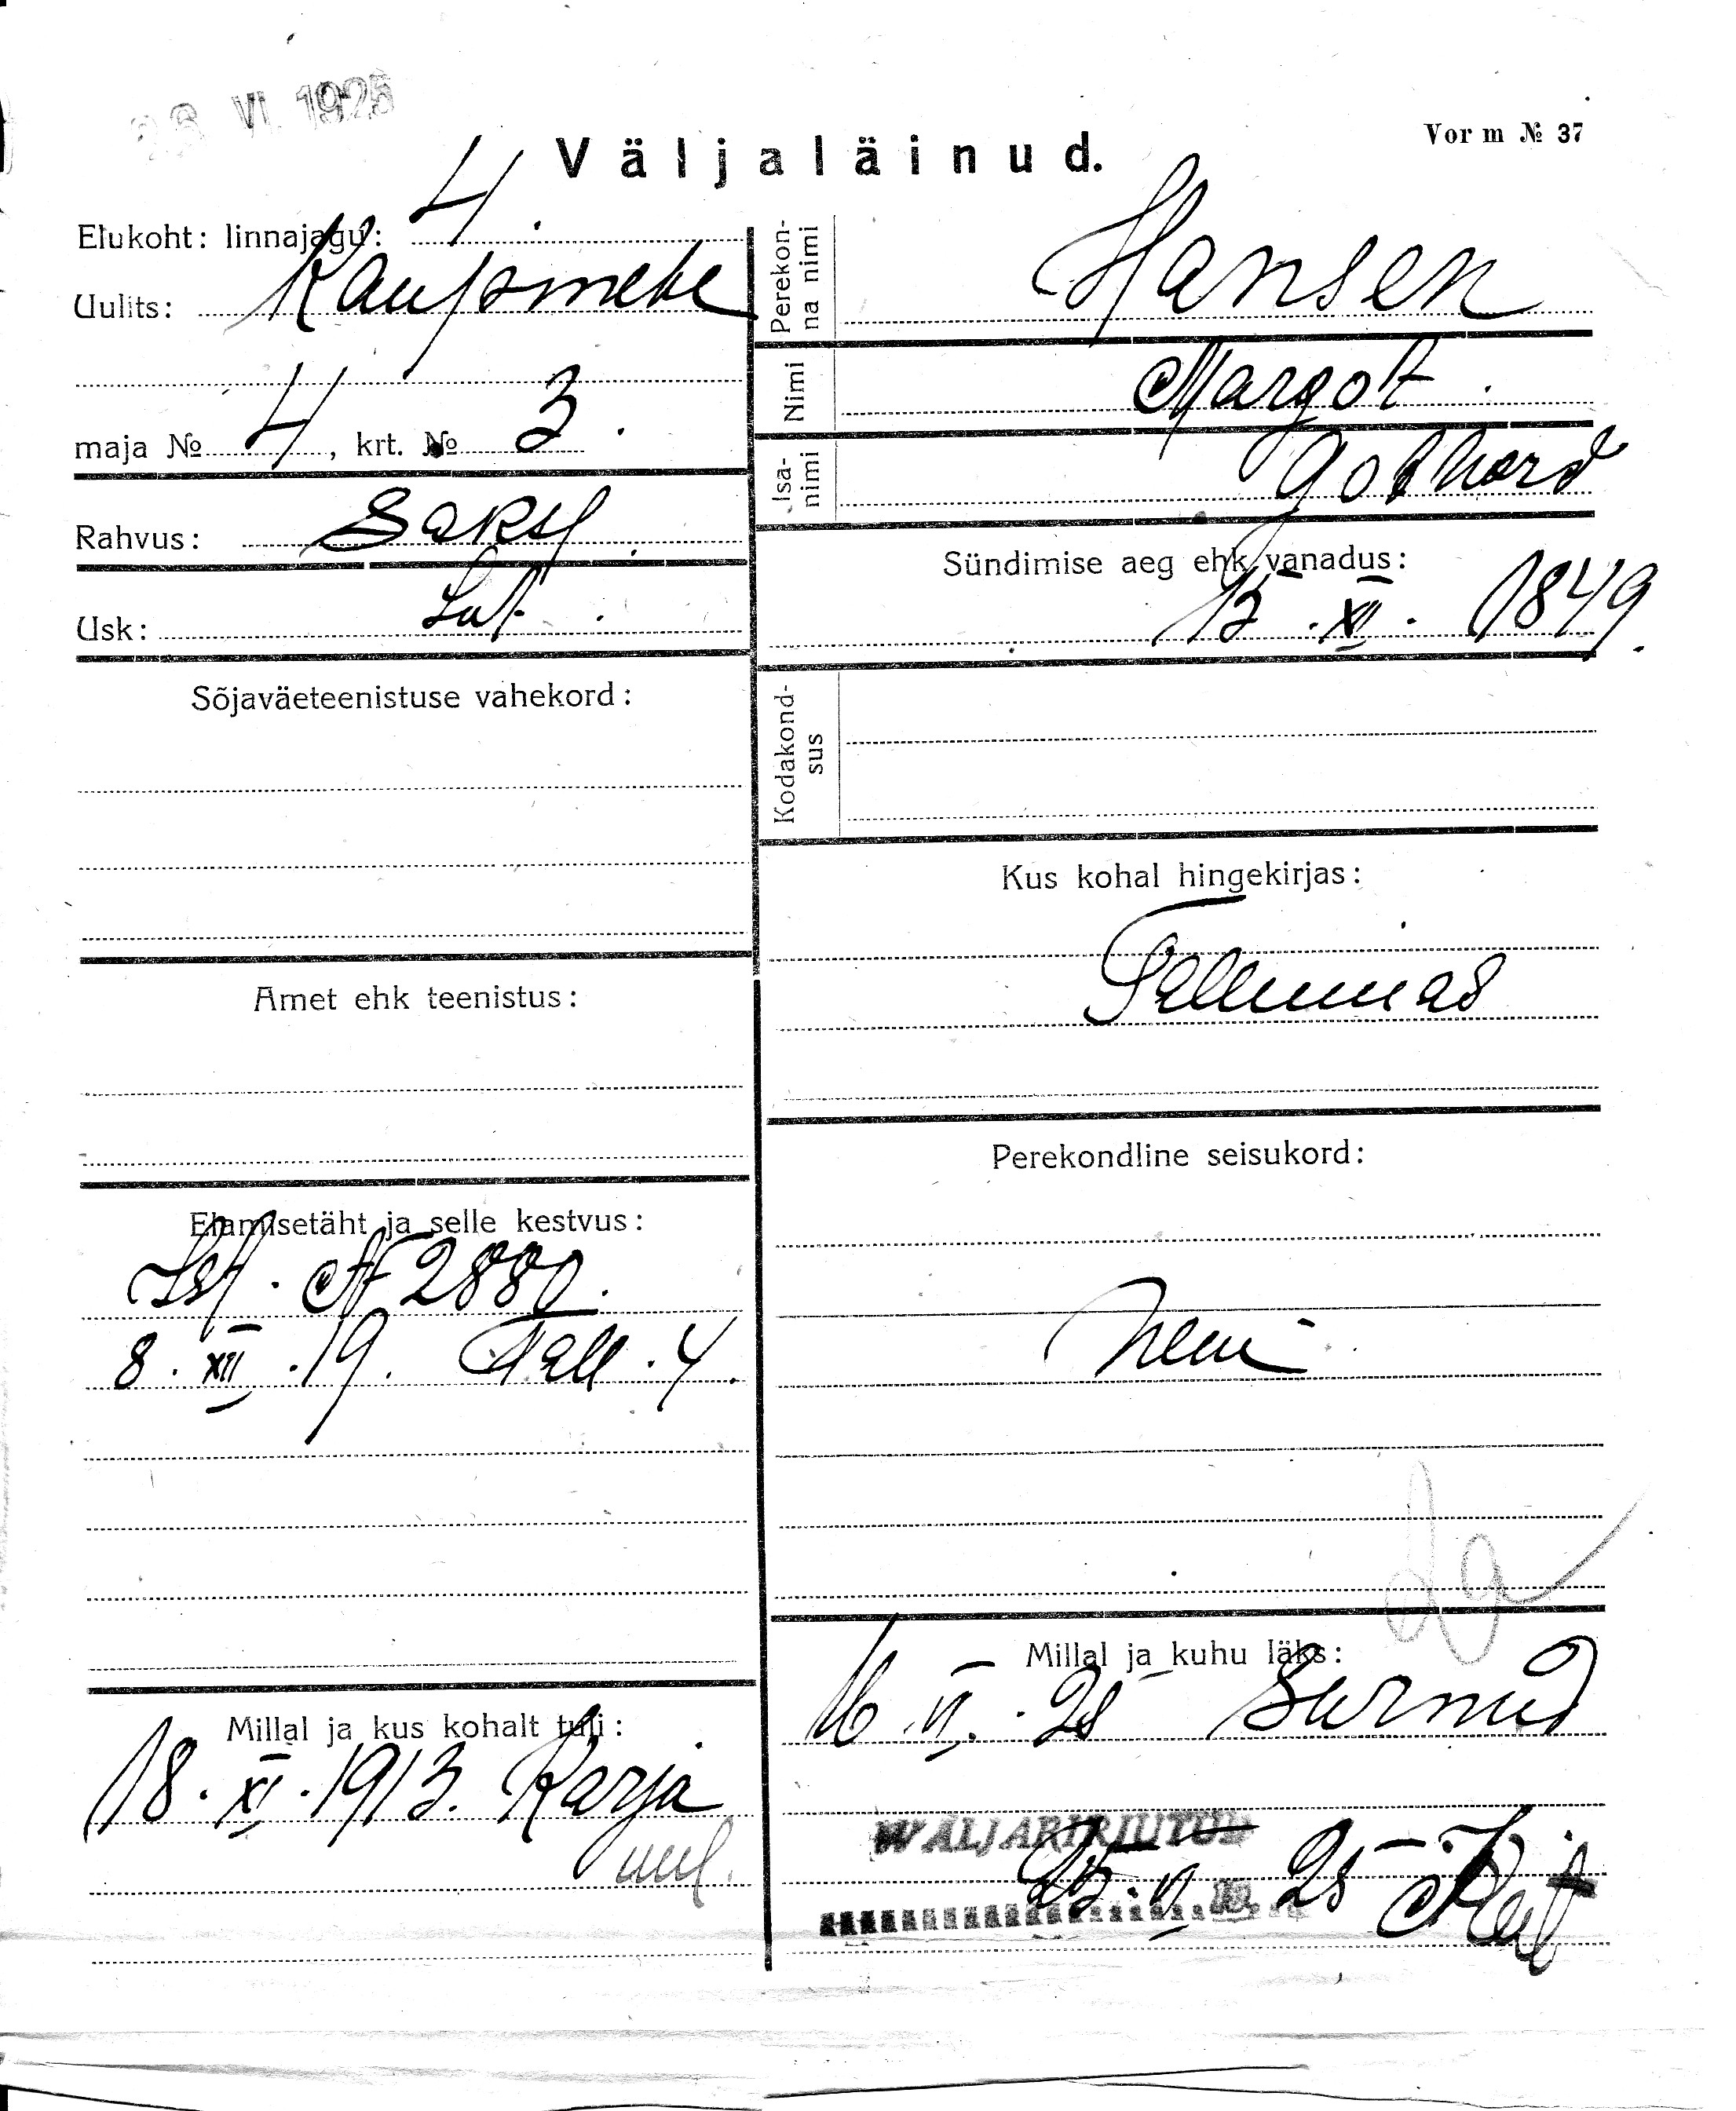 VI. 1925
Väljaläinud.
Vorm № 37
Elukoht: linnajagu: 4.
Uulits: Kaupmehe
maja № 4, krt. № 3.
Rahvus: Saksl.
Usk: Lut.
Sõjaväeteenistuse vahekord:
Amet ehk teenistus:
Elamisetäht ja selle kestvus:
№ 2880.
8. XII. 19. Tall. 4.
Millal ja kus kohalt tuli:
18. XI. 1913. Karja
uul.
Perekonna nimi
Hansen
Nimi
Margot.
Isanimi
Gothard
Sündimise aeg ehk vanadus:
XII. 1849.
Kodakondsus
Kus kohal hingekirjas:
Tallinnas
Perekondline seisukord:
Millal ja kuhu läks:
16. VI. 25 Surnud
WÄLJAKIRJUTUS
25. VI 25